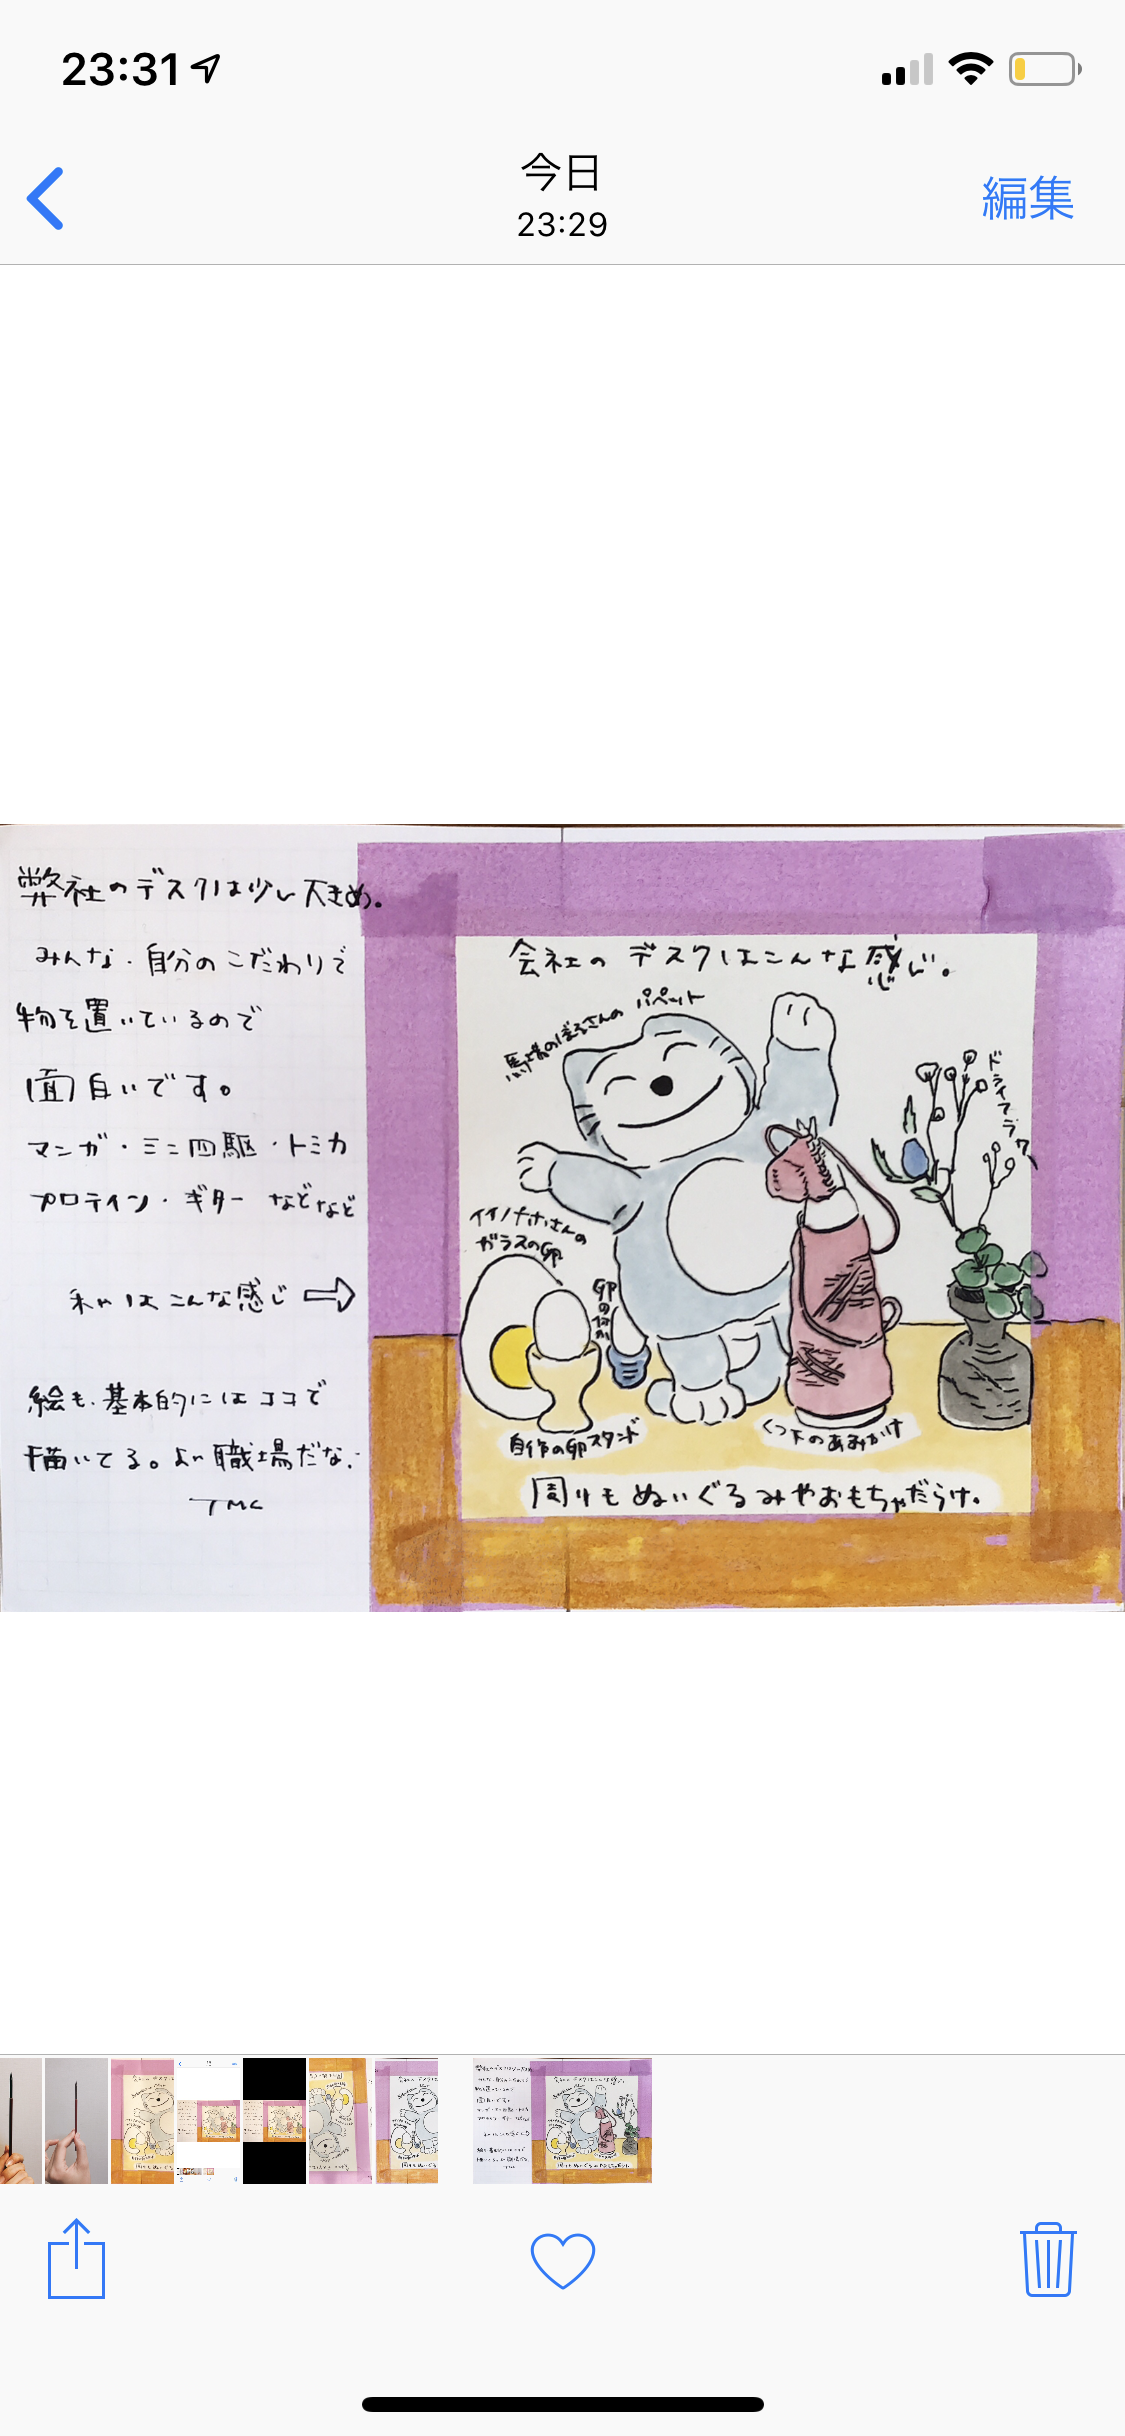 23:31
今日
23:29
編集
弊社のデスクは少し大きめ。
みんな、自分のこだわりで
物を置いているので
面白いです。
マンガ・ミニ四駆・トミカ
プロテイン・ギターなどなど
私はこんな感じ
絵も、基本的にはココで
描いてる。よい職場だな。
TMC
会社のデスクはこんな感じ。
馬場のぼるさんのパペット
ドライフラワー
イイノナホさんの
ガラスの卵
卵の
自作の卵スタンド
くつ下のあみかけ
周りもぬいぐるみやおもちゃだらけ。